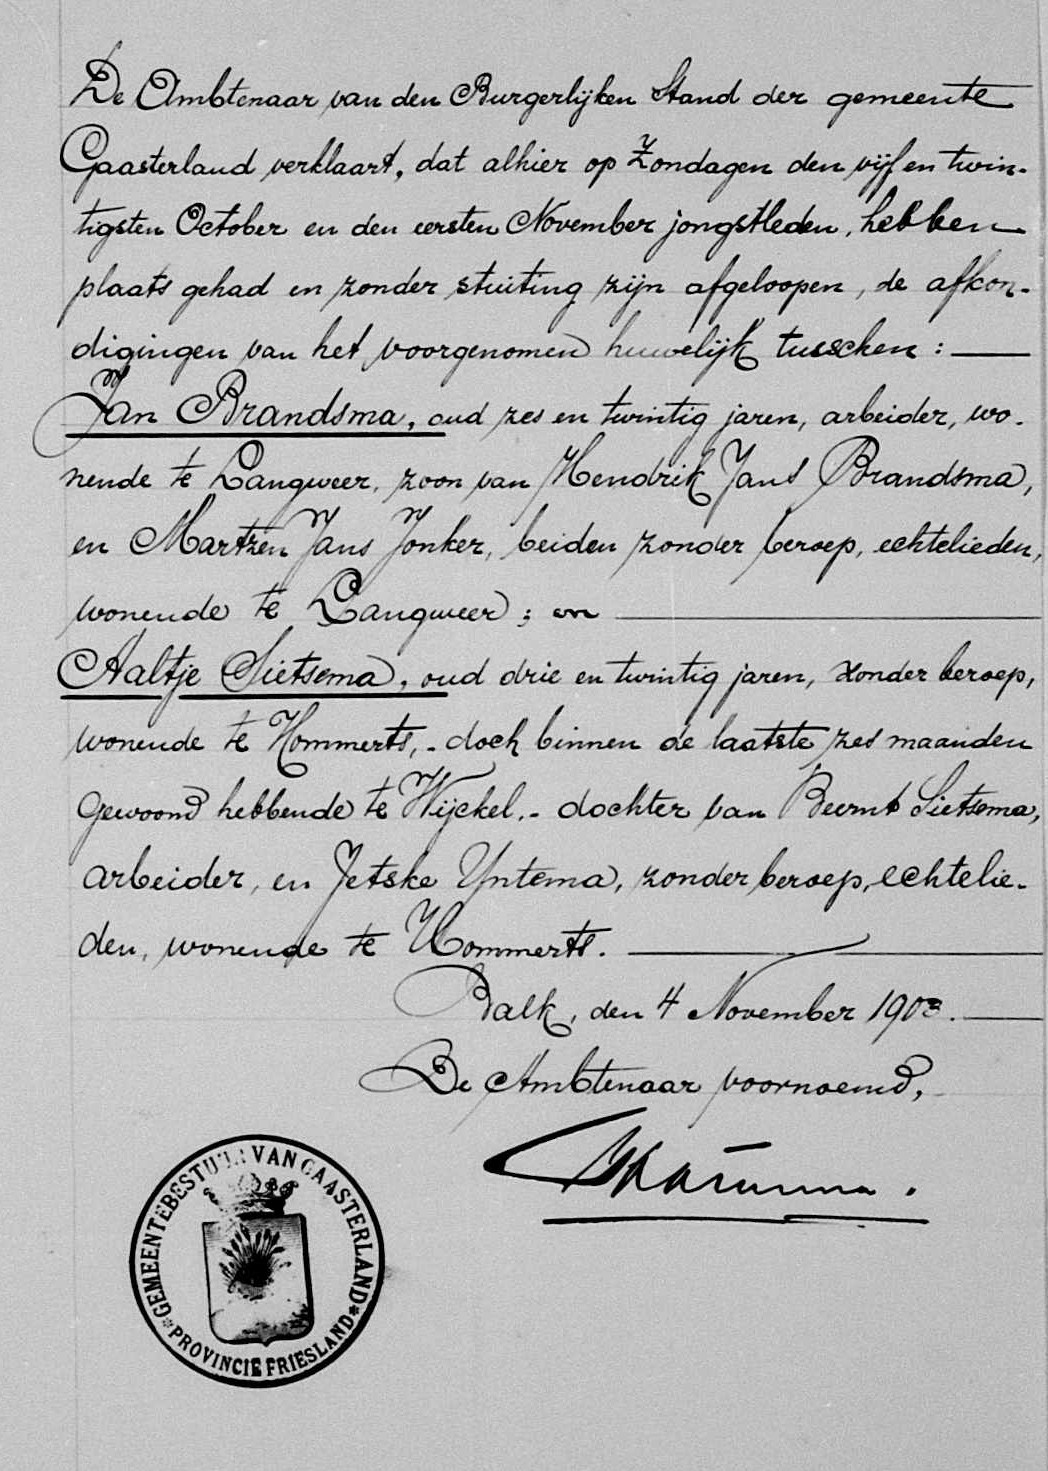 De Ambtenaar van den Burgerlijken Stand der gemeente
Gaasterland verklaart, dat alhier op Zondagen den vijf en twin-
tigsten October en den eersten November jongstleden, hebben
plaats gehad en zonder stuiting zijn afgeloopen, de afkon-
digingen van het voorgenomen huwelijk tusschen:
Jan Brandsma, oud zes en twintig jaren, arbeider, wo-
nende te Langweer, zoon van Hendrik Jans Brandsma,
en Martzen Jans Jonker, beiden zonder beroep, echtelieden,
wonende te Langweer; en
Aaltje Sietsema, oud drie en twintig jaren, zonder beroep,
wonende te Hommerts,- doch binnen de laatste zes maanden
gewoond hebbende te Wijckel.- dochter van Beernt Sietsema,
arbeider, en Jetske Yntema, zonder beroep, echtelie-
den, wonende te Hommerts.
Balk, den 4 November 1903.
De Ambtenaar voornoemd,
GEMEENTEBESTUUR VAN GAASTERLAND
* PROVINCIE FRIESLAND *